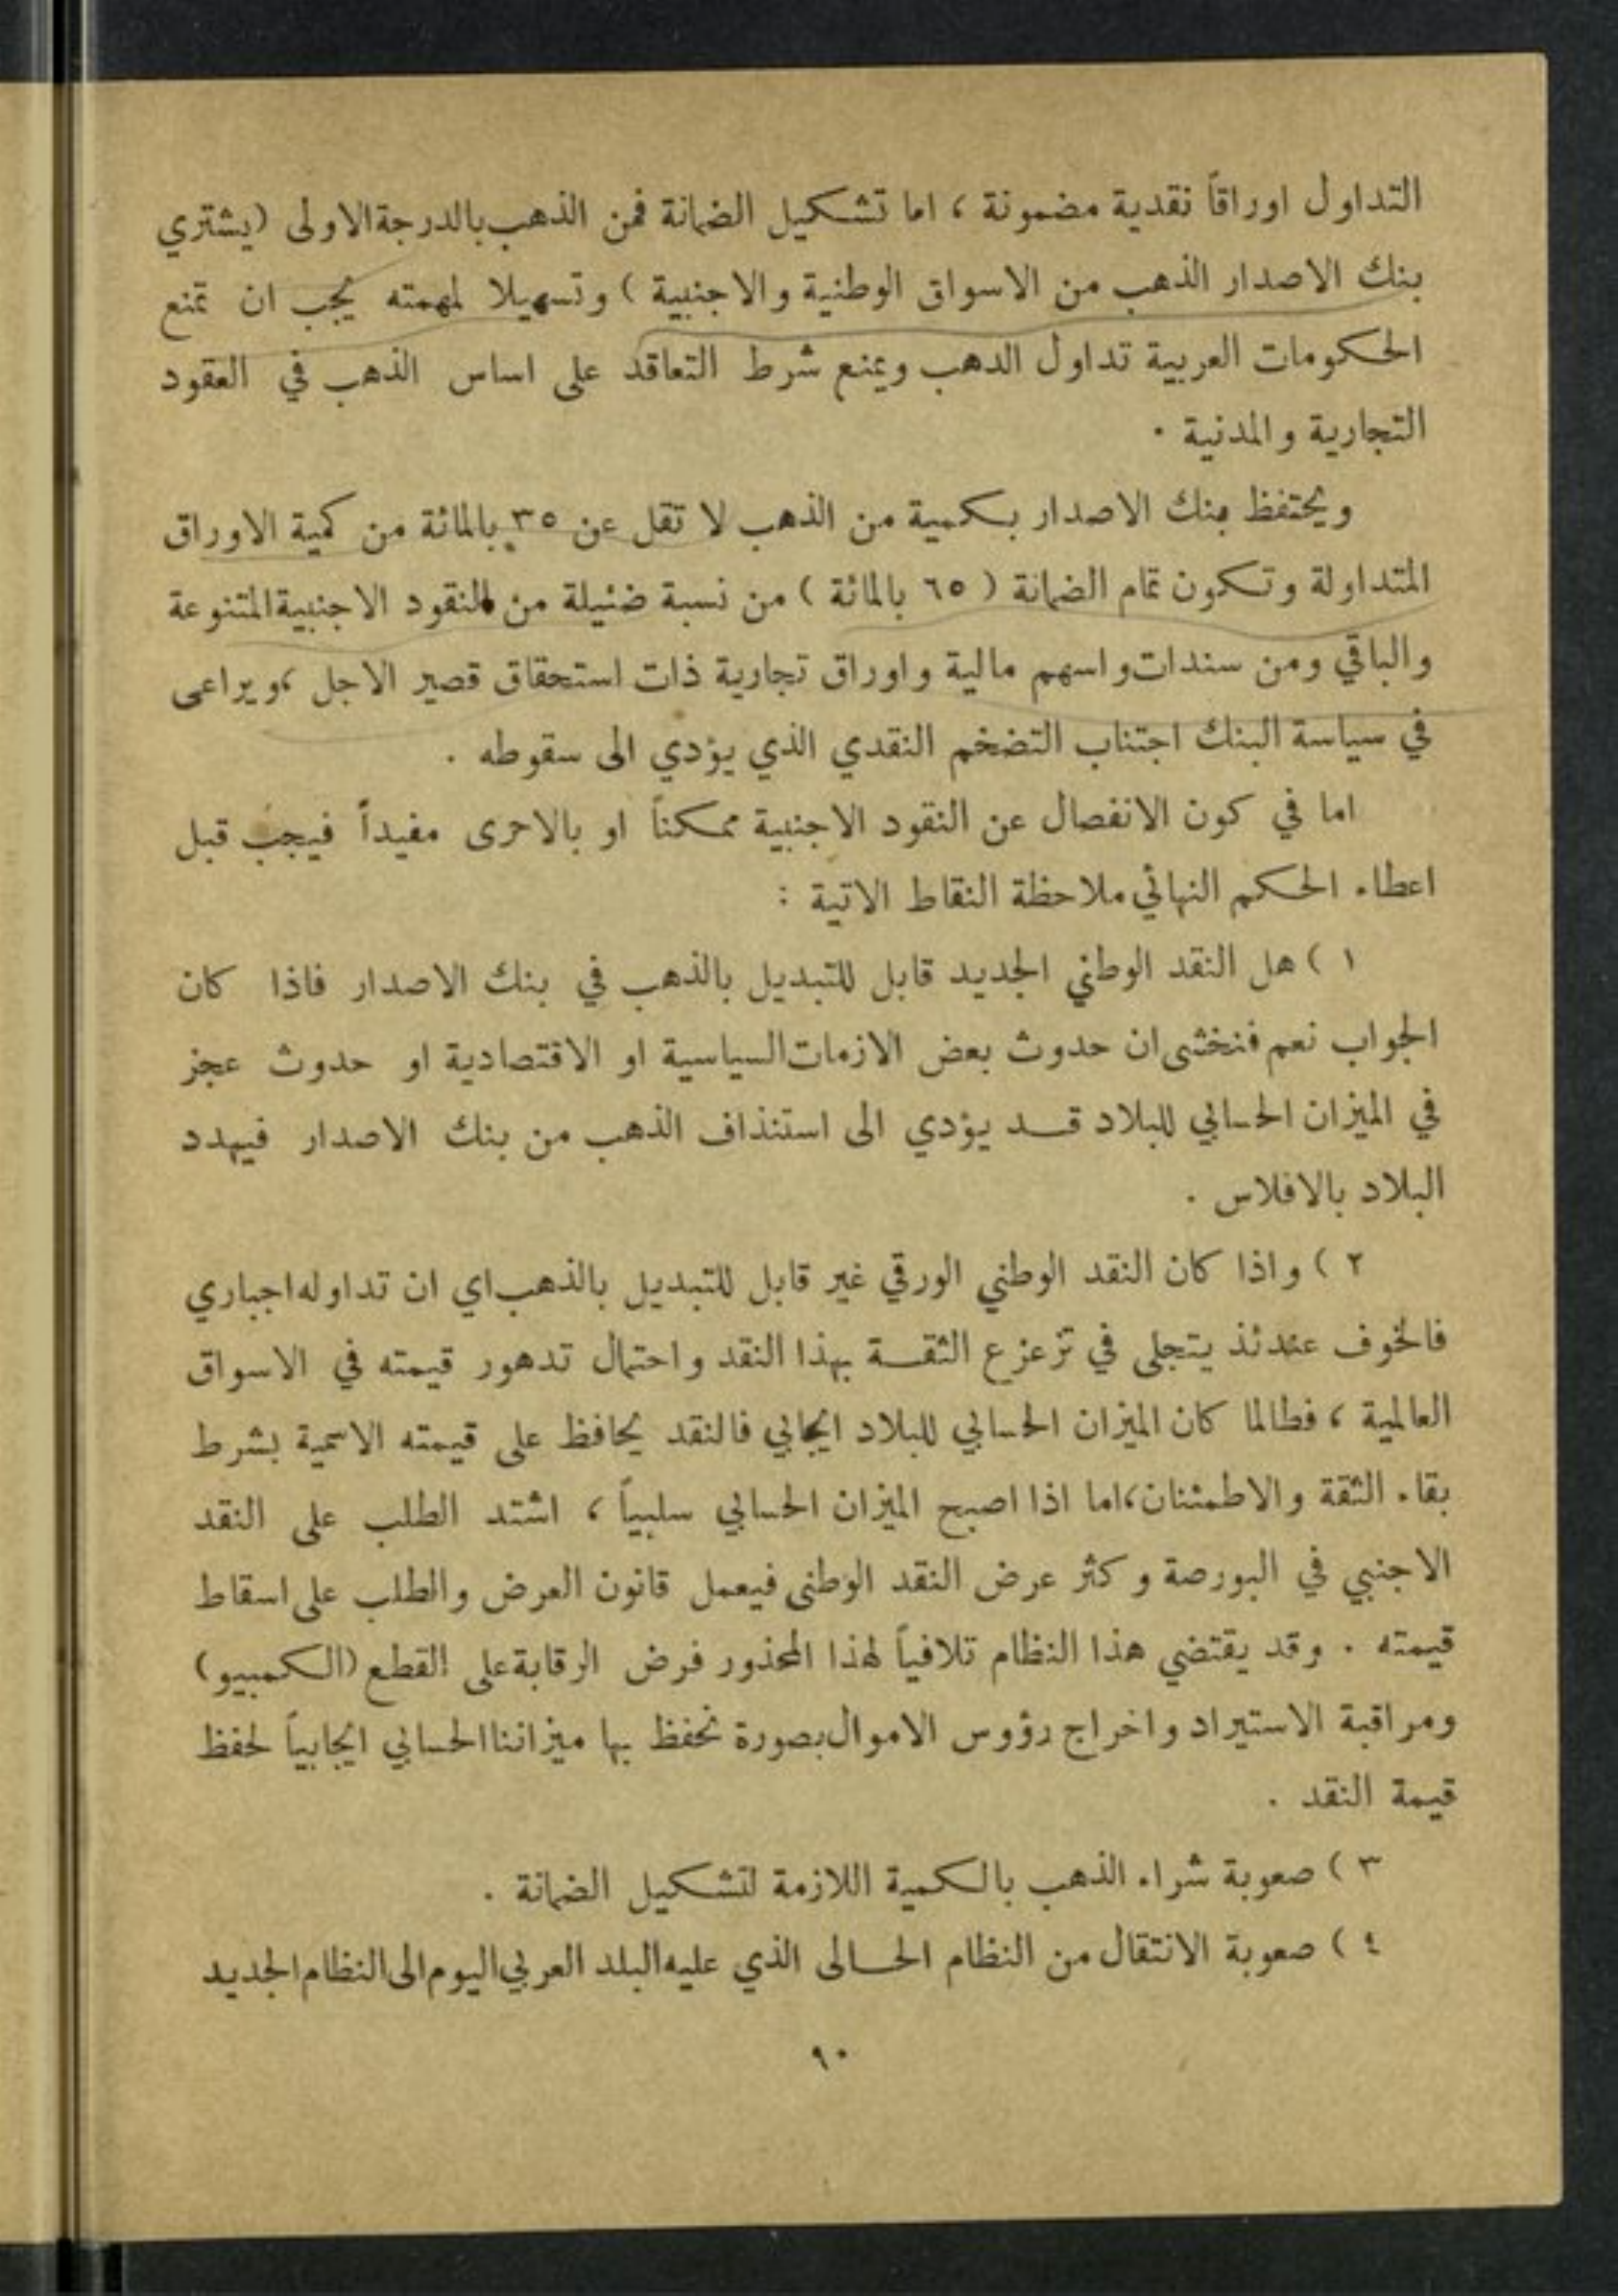 التداول اوراقاً نقدية مضمونة ، اما تشكيل الضمانة فمن الذهب بالدرجة الاولى (يشتري
بنك الاصدار الذهب من الاسواق الوطنية والاجنبية ) وتسهيلا لمهمته يجب ان تمنع
الحكومات العربية تداول الدهب ويمنع شرط التعاقد على اساس الذهب في العقود
التجارية والمدنية .
ويحتفظ بنك الاصدار بكمية من الذهب لا تقل عن ٣٥ بالمائة من كمية الاوراق
المتداولة وتكون تمام الضمانة ( ٦٥ بالمائة ) من نسبة ضئيلة من النقود الاجنبية المتنوعة
والباقي ومن سندات واسهم مالية واوراق تجارية ذات استحقاق قصير الاجل ، ويراعى
في سياسة البنك اجتناب التضخم النقدي الذي يؤدي الى سقوطه .
اما في كون الانفصال عن النقود الاجنبية ممكناً او بالاحرى مفيداً فيجب قبل
اعطاء الحكم النهائي ملاحظة النقاط الاتية :
١ ) هل النقد الوطني الجديد قابل للتبديل بالذهب في بنك الاصدار فاذا كان
الجواب نعم فنخشى ان حدوث بعض الازمات السياسية او الاقتصادية او حدوث عجز
في الميزان الحسابي للبلاد قد يؤدي الى استنذاف الذهب من بنك الاصدار فيهدد
البلاد بالافلاس .
٢ ) واذا كان النقد الوطني الورقي غير قابل للتبديل بالذهب اي ان تداوله اجباري
فالخوف عندئذ يتجلى في تزعزع الثقة بهذا النقد واحتمال تدهور قيمته في الاسواق
العالمية ، فطالما كان الميزان الحسابي للبلاد ايجابي فالنقد يحافظ على قيمته الاسمية بشرط
بقاء الثقة والاطمئنان ، اما اذا اصبح الميزان الحسابي سلبياً ، اشتد الطلب على النقد
الاجنبي في البورصة وكثر عرض النقد الوطني فيعمل قانون العرض والطلب على اسقاط
قيمته . وقد يقتضي هذا النظام تلافياً لهذا المحذور فرض الرقابة على القطع (الكمبيو)
ومراقبة الاستيراد واخراج رؤوس الاموال بصورة نحفظ بها ميزاننا الحسابي ايجابياً لحفظ
قيمة النقد .
٣ ) صعوبة شراء الذهب بالكمية اللازمة لتشكيل الضمانة .
٤ ) صعوبة الانتقال من النظام الحالى الذي عليه البلد العربي اليوم الى النظام الجديد
٩٠